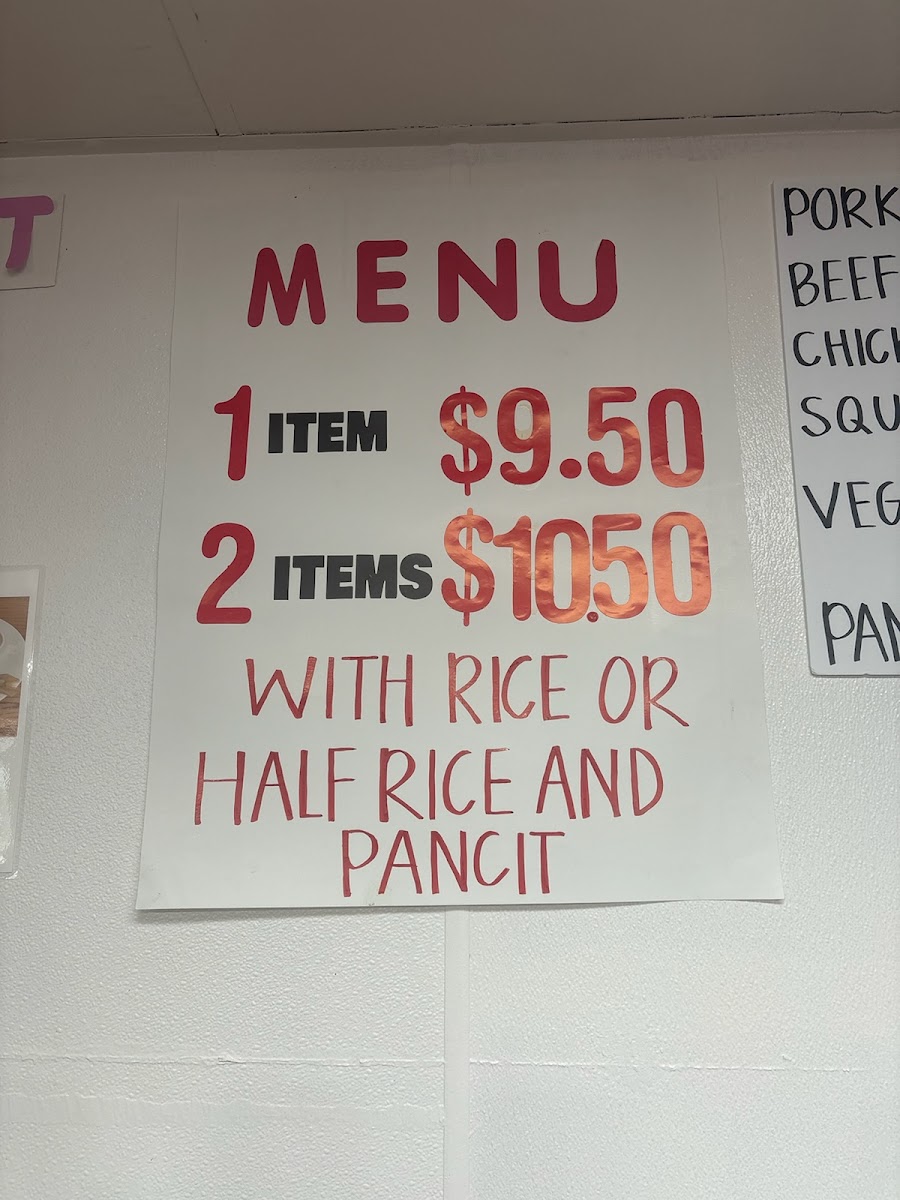 T
MENU
1 ITEM $9.50
2 ITEMS $10.50
WITH RICE OR
HALF RICE AND
PANCIT
PORK
BEEF